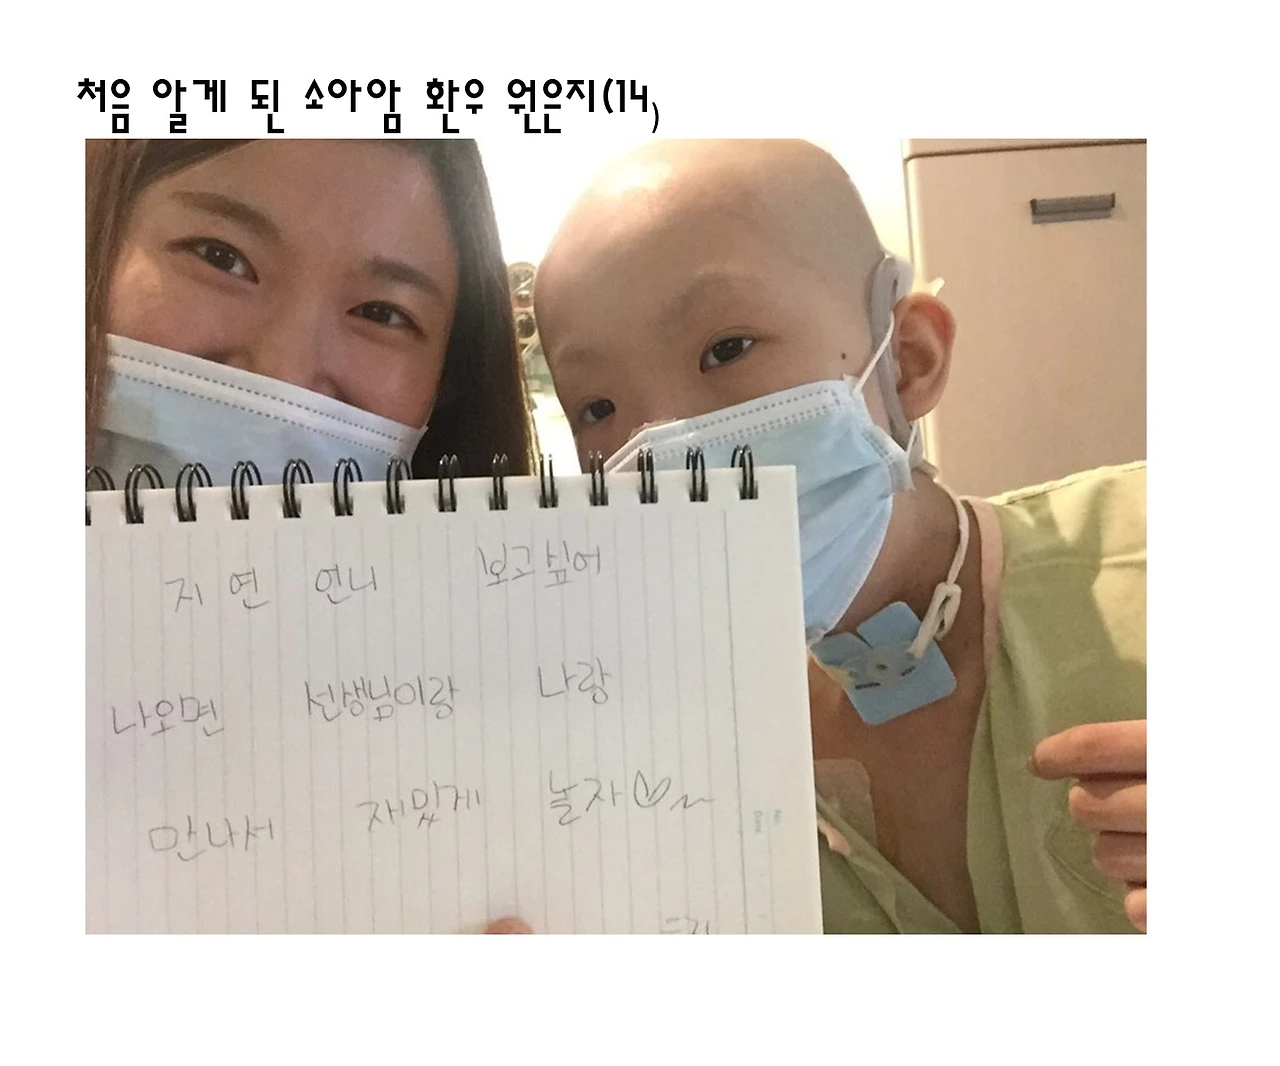 처음 알게 된 소아암 환우 원은지(14)
지연 언니 보고싶어
나오면 선생님이랑 나랑
만나서 재밌게 놀자♡~
No.
Date.